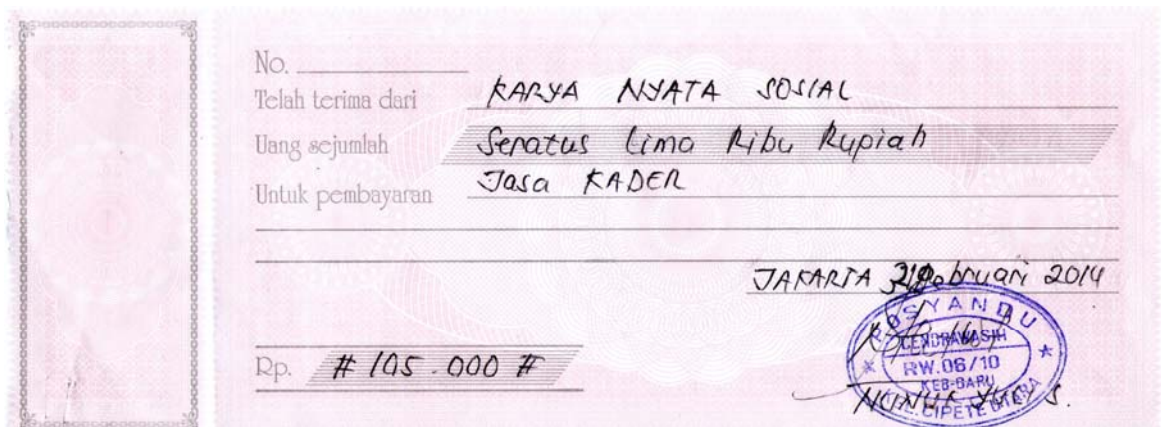 No.
Telah terima dari KARYA NYATA SOSIAL
Uang sejumlah Seratus Lima Ribu Rupiah
Untuk pembayaran Jasa KADER
JAKARTA Februari 2014
POSYANDU
CENDRAWASIH
RW.06/10
KEB-BARU
KEL. CIPETE UTARA
Rp. # 105.000 #
NUNUK S.